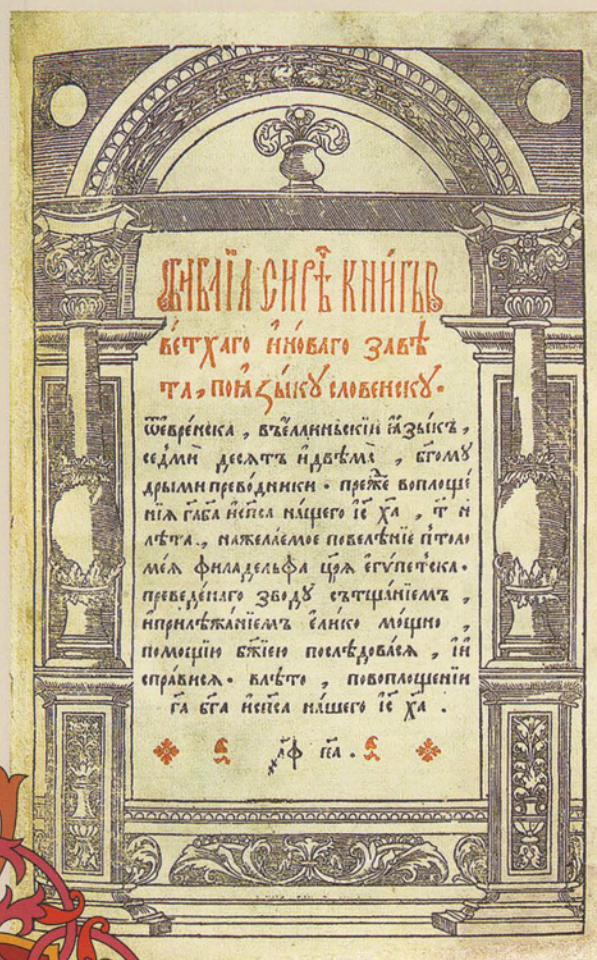 Библїа сирѣ книгы
ве́тхаго и҆но́ваго завѣ
та, поꙗ҆зы́ку словенску.
ѿевре́йска, въе҆ллиньскїи ꙗ҆зы́къ,
седми десѧтъ идвѣмѧ, бг҃ому
дрыми преводники. пре́же воплоще́
нїѧ га҃ба҃ исп҃са на́шего іс҃ ха҃, т҃ и
лѣта., нажела́емое повелѣнїе птоло
ме́ѧ филаделфа цр҃ѧ е҆гѵпетска.
преведе́наго зводу сътща́нїемъ,
иприлѣжа́нїемъ елико мощно,
помощїю бж҃їею послѣдовасѧ, и҆и
спра́висѧ. влѣто, повоплощенїи
га҃ бг҃а исп҃са на́шего іс҃ ха҃.
҂аф па.